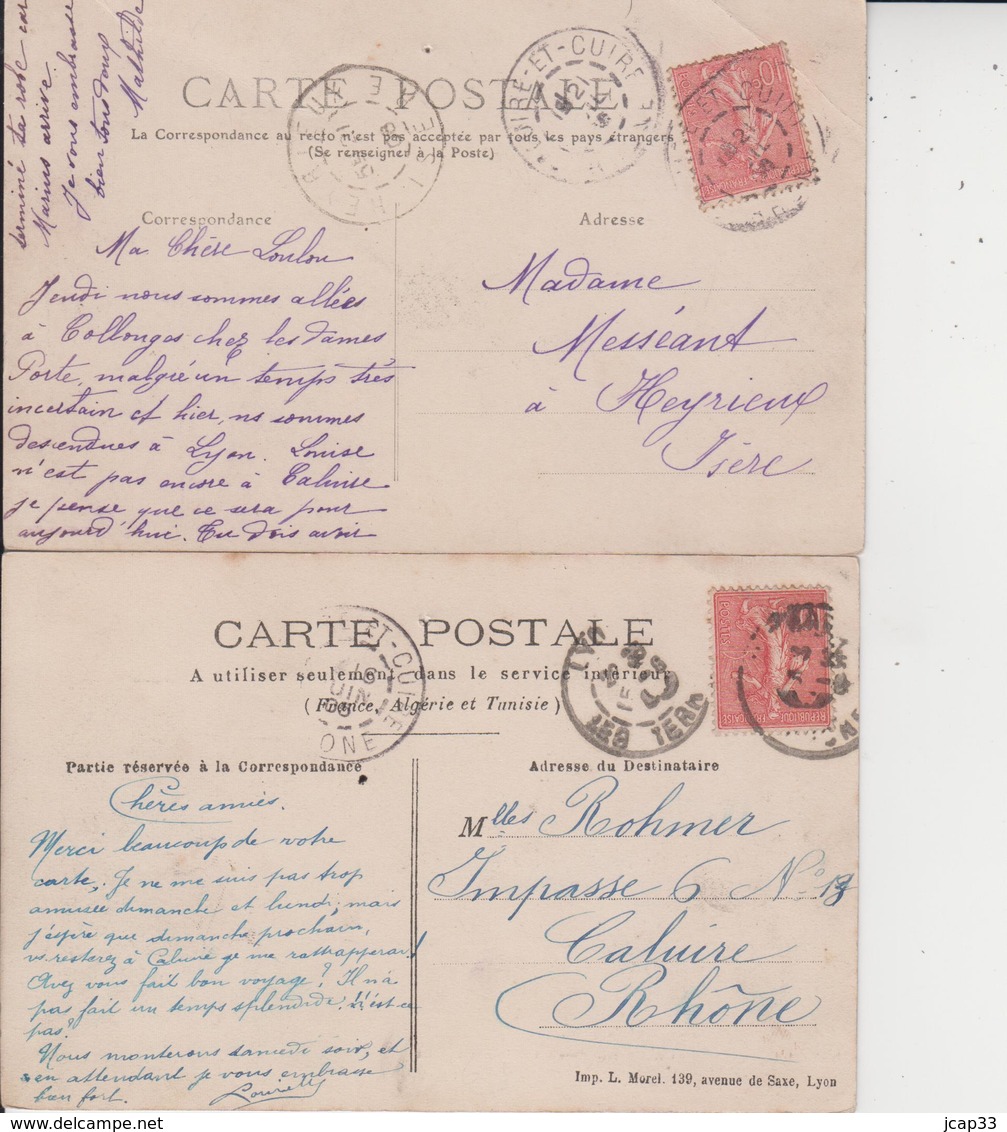 terminé ta robe car
Marius arrive.
Je vous embrasse
bien tous deux
Mathilde
CARTE POSTALE
La Correspondance au recto n'est pas acceptée par tous les pays étrangers
(Se renseigner à la Poste)
Correspondance
Adresse
Ma Chère Loulou
Jeudi nous sommes allées
à Collonges chez les dames
Porte, malgré un temps très
incertain et hier, ns sommes
descendues à Lyon. Louise
n'est pas encore à Caluire
je pense que ce sera pour
aujourd'hui. Tu dois avoir
Madame
Messéant
à Heyrieux
Isère
CARTE POSTALE
A utiliser seulement dans le service intérieur
(France, Algérie et Tunisie)
Partie réservée à la Correspondance
Adresse du Destinataire
Chères amies.
Merci beaucoup de votre
carte, Je ne me suis pas trop
amusée dimanche et lundi, mais
j'espère que dimanche prochain,
vs resterez à Caluire je me rattrapperai!
Avez vous fait bon voyage? Il n'a
pas fait un temps splendide! n'est-ce
pas?
Nous monterons samedi soir, et
en attendant je vous embrasse
bien fort.
Mlles Rohmer
Impasse 6 No
Caluire
Rhône
Imp. L. Morel. 139, avenue de Saxe, Lyon
jcap33